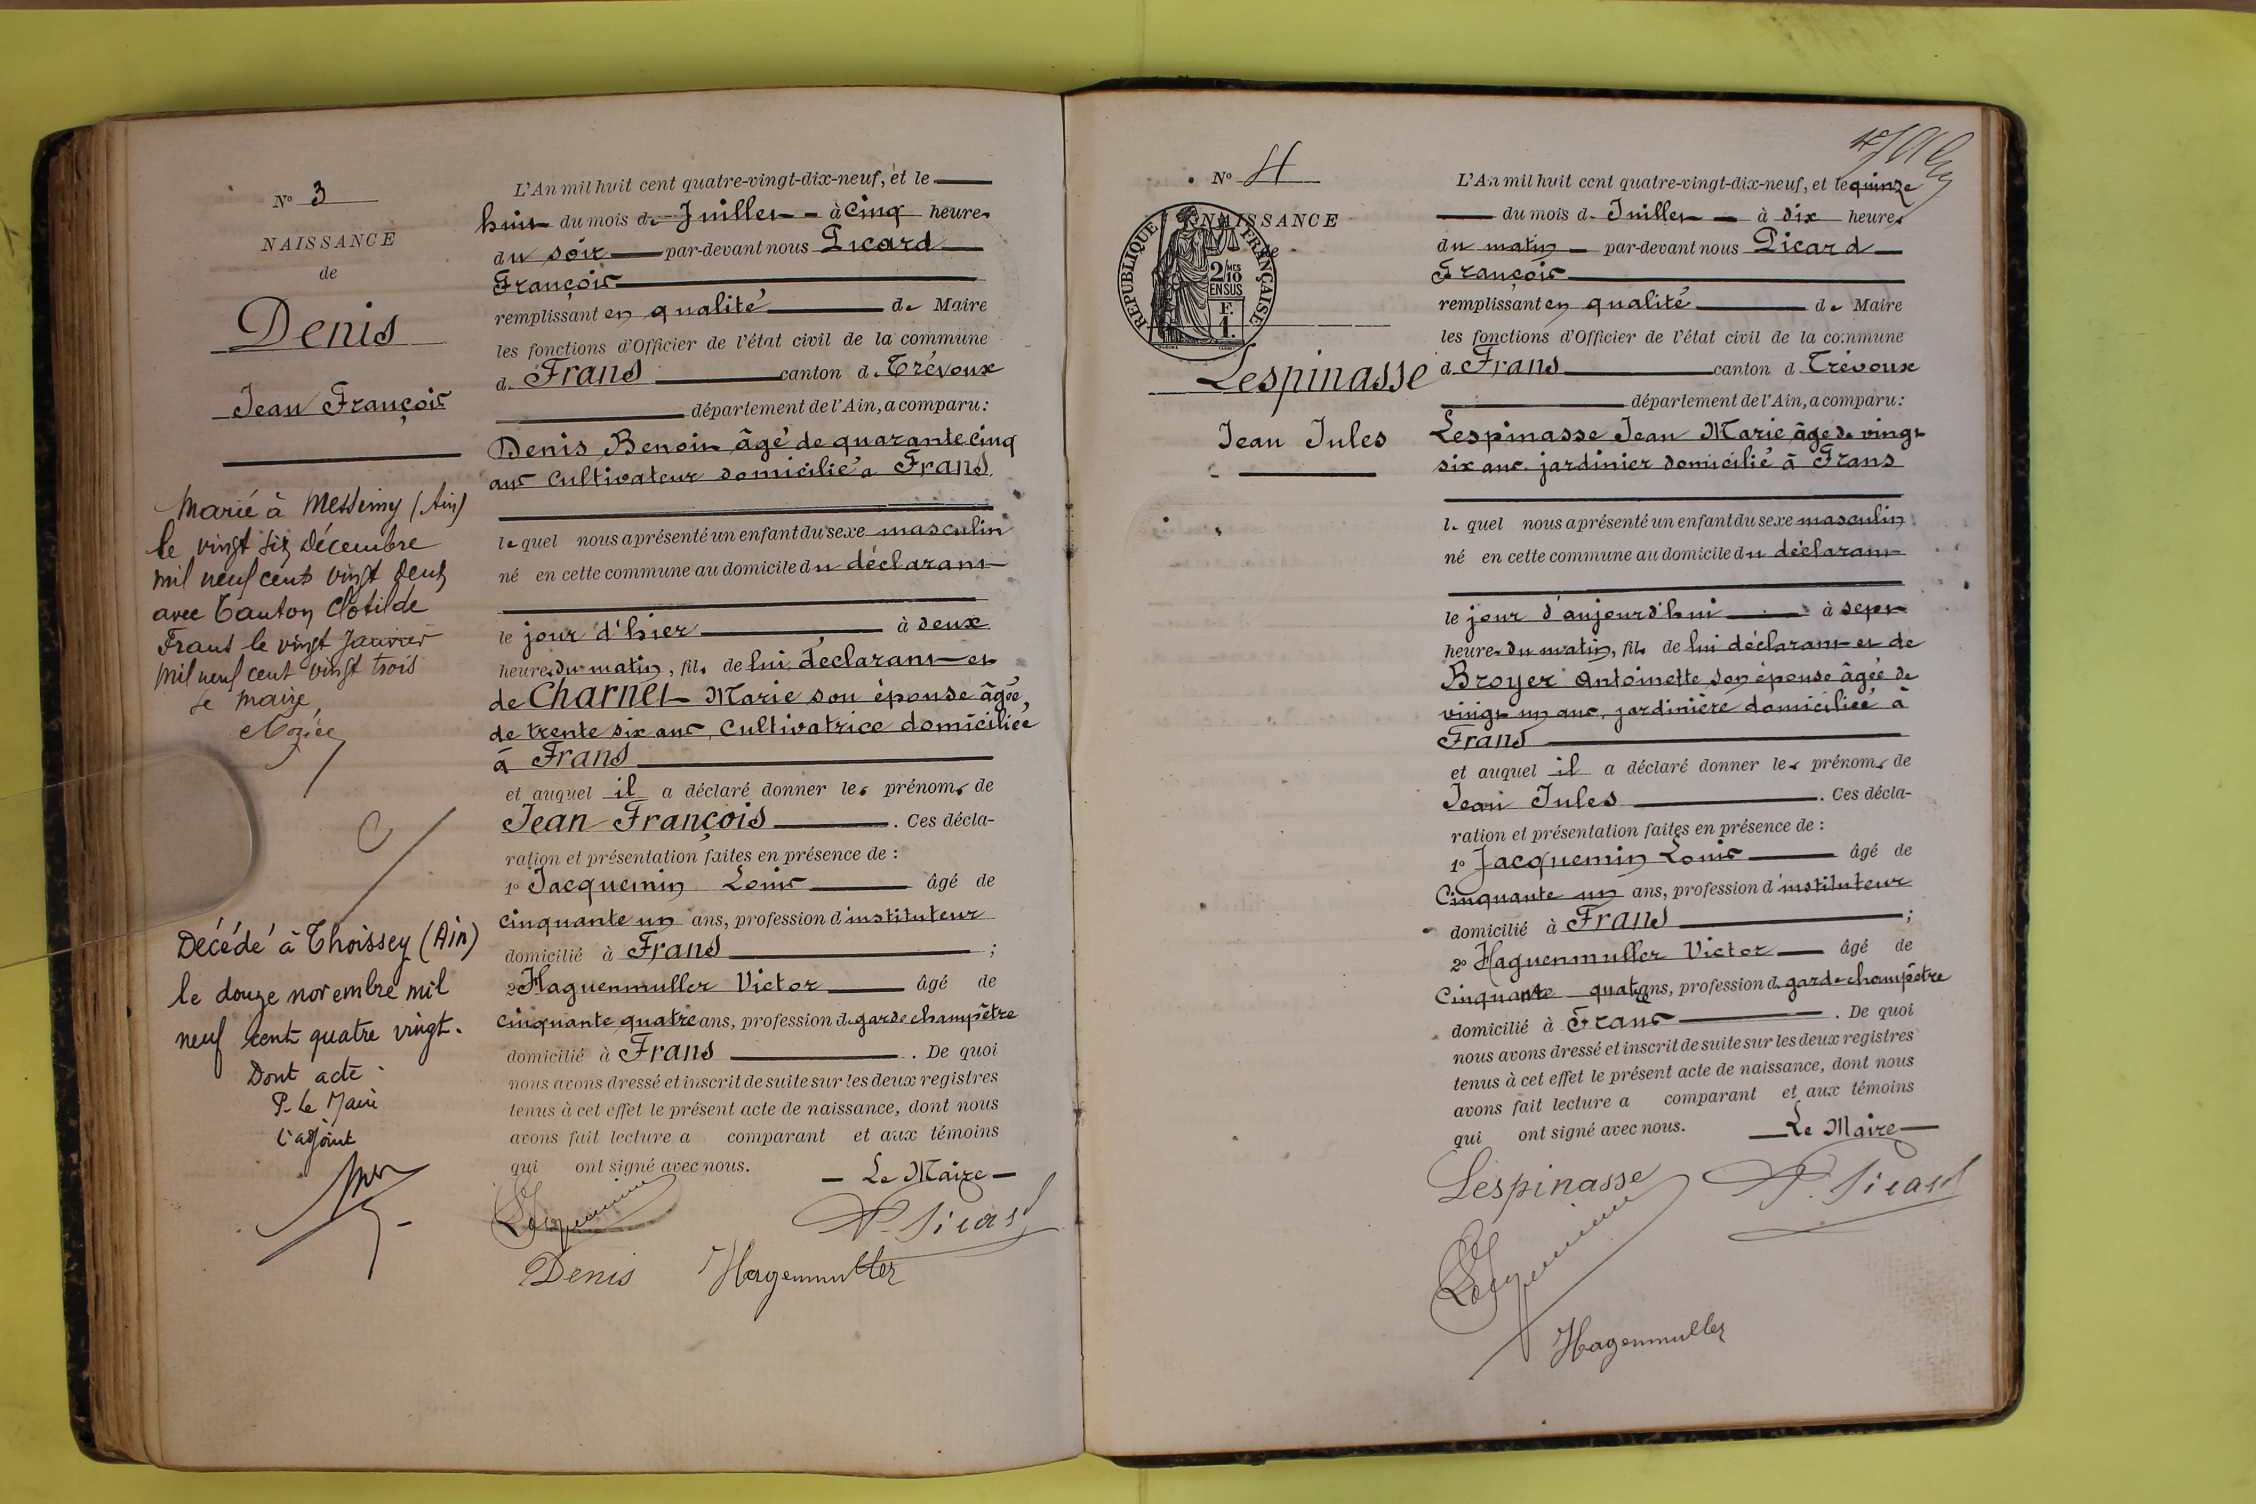 N° 3
NAISSANCE
de
Denis
Jean François
Marié à Messimy (Ain)
le vingt six décembre
mil neuf cent vingt deux
avec Tanton Clotilde
Frans le vingt Janvier
mil neuf cent vingt trois
Le Maire,
Décédé à Thoissey (Ain)
le douze novembre mil
neuf cent quatre vingt.
Dont acte
P. Le Maire
L'adjoint
L'An mil huit cent quatre-vingt-dix-neuf, et le
huit du mois de Juillet à cinq heures
du soir par-devant nous Picard
François
remplissant en qualité de Maire
les fonctions d'Officier de l'état civil de la commune
de Frans canton de Trévoux
département de l'Ain, a comparu :
Denis Benoit âgé de quarante cinq
ans cultivateur domicilié à Frans
lequel nous a présenté un enfant du sexe masculin
né en cette commune au domicile du déclarant
le jour d'hier à deux
heures du matin, fils de lui déclarant et
de Charnet Marie son épouse âgée
de trente six ans, cultivatrice domiciliée
à Frans
et auquel il a déclaré donner les prénoms de
Jean François . Ces décla-
ration et présentation faites en présence de :
1° Jacquemin Louis âgé de
cinquante un ans, profession d'instituteur
domicilié à Frans ;
2° Haguenmuller Victor âgé de
cinquante quatre ans, profession de garde champêtre
domicilié à Frans . De quoi
nous avons dressé et inscrit de suite sur les deux registres
tenus à cet effet le présent acte de naissance, dont nous
avons fait lecture a comparant et aux témoins
qui ont signé avec nous.
Le Maire
Jacquemin
P. Picard
Denis Hagenmuller
N° 4
NAISSANCE
de
RÉPUBLIQUE FRANÇAISE
2/10 MES
EN SUS
F.
1.
Lespinasse
Jean Jules
L'An mil huit cent quatre-vingt-dix-neuf, et le quinze
du mois de Juillet à dix heures
du matin par-devant nous Picard
François
remplissant en qualité de Maire
les fonctions d'Officier de l'état civil de la commune
d Frans canton d Trévoux
département de l'Ain, a comparu :
Lespinasse Jean Marie âgé de vingt
six ans jardinier domicilié à Frans
lequel nous a présenté un enfant du sexe masculin
né en cette commune au domicile du déclarant
le jour d'aujourd'hui à sept
heures du matin, fils de lui déclarant et de
Broyer Antoinette son épouse âgée de
vingt un ans, jardinière domiciliée à
Frans
et auquel il a déclaré donner les prénoms de
Jean Jules . Ces décla-
ration et présentation faites en présence de :
1° Jacquemin Louis âgé de
Cinquante un ans, profession d'instituteur
domicilié à Frans ;
2° Haguenmuller Victor âgé de
Cinquante quatre ans, profession de garde champêtre
domicilié à Frans . De quoi
nous avons dressé et inscrit de suite sur les deux registres
tenus à cet effet le présent acte de naissance, dont nous
avons fait lecture a comparant et aux témoins
qui ont signé avec nous.
Le Maire
Lespinasse P. Picard
Jacquemin
Hagenmuller